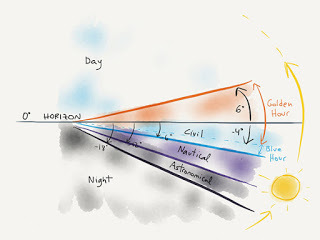 Day
6°
Golden
Hour
0° HORIZON
-6°
Civil
-4°
Blue
Hour
-12°
-18°
Nautical
Astronomical
Night